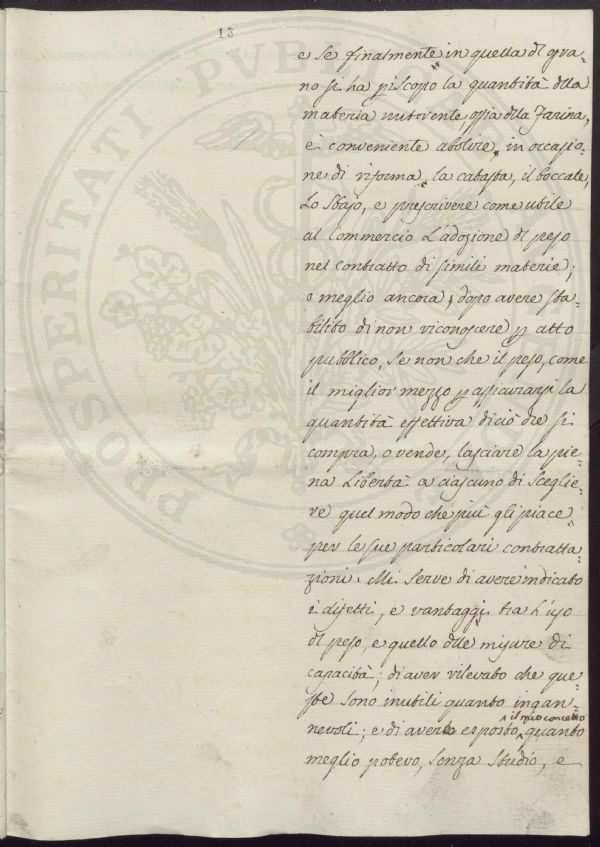 13
PROSPERITATI PVBLICAE
e se finalmente in quella di gra-
no si ha p iscopo la quantità dlla
materia nutriente, ossia dlla Farina,
è conveniente abolire, in occasio-
ne di riforma, la catasta, il boccale,
Lo Stajo, e prescrivere come utile
al Commercio L'adozione dl peso
nel contratto di simili materie;
o meglio ancora, dopo avere sta-
bilito di non riconoscere p atto
pubblico, se non che il peso, come
il miglior mezzo p assicurarsi la
quantità effettiva di ciò che si
compra, o vende, lasciare la pie-
na Libertà a ciascuno di sceglie-
re quel modo che più gli piace
per le sue particolari contratta-
zioni. Mi serve di avere indicato
i difetti, e vantaggj tra L'uso
dl peso, e quello dlle misure di
capacità; di aver rilevato che que-
ste sono inutili quanto ingan-
nevoli; e di aver esposto ^il mio concetto quanto
meglio potevo, senza studio, e